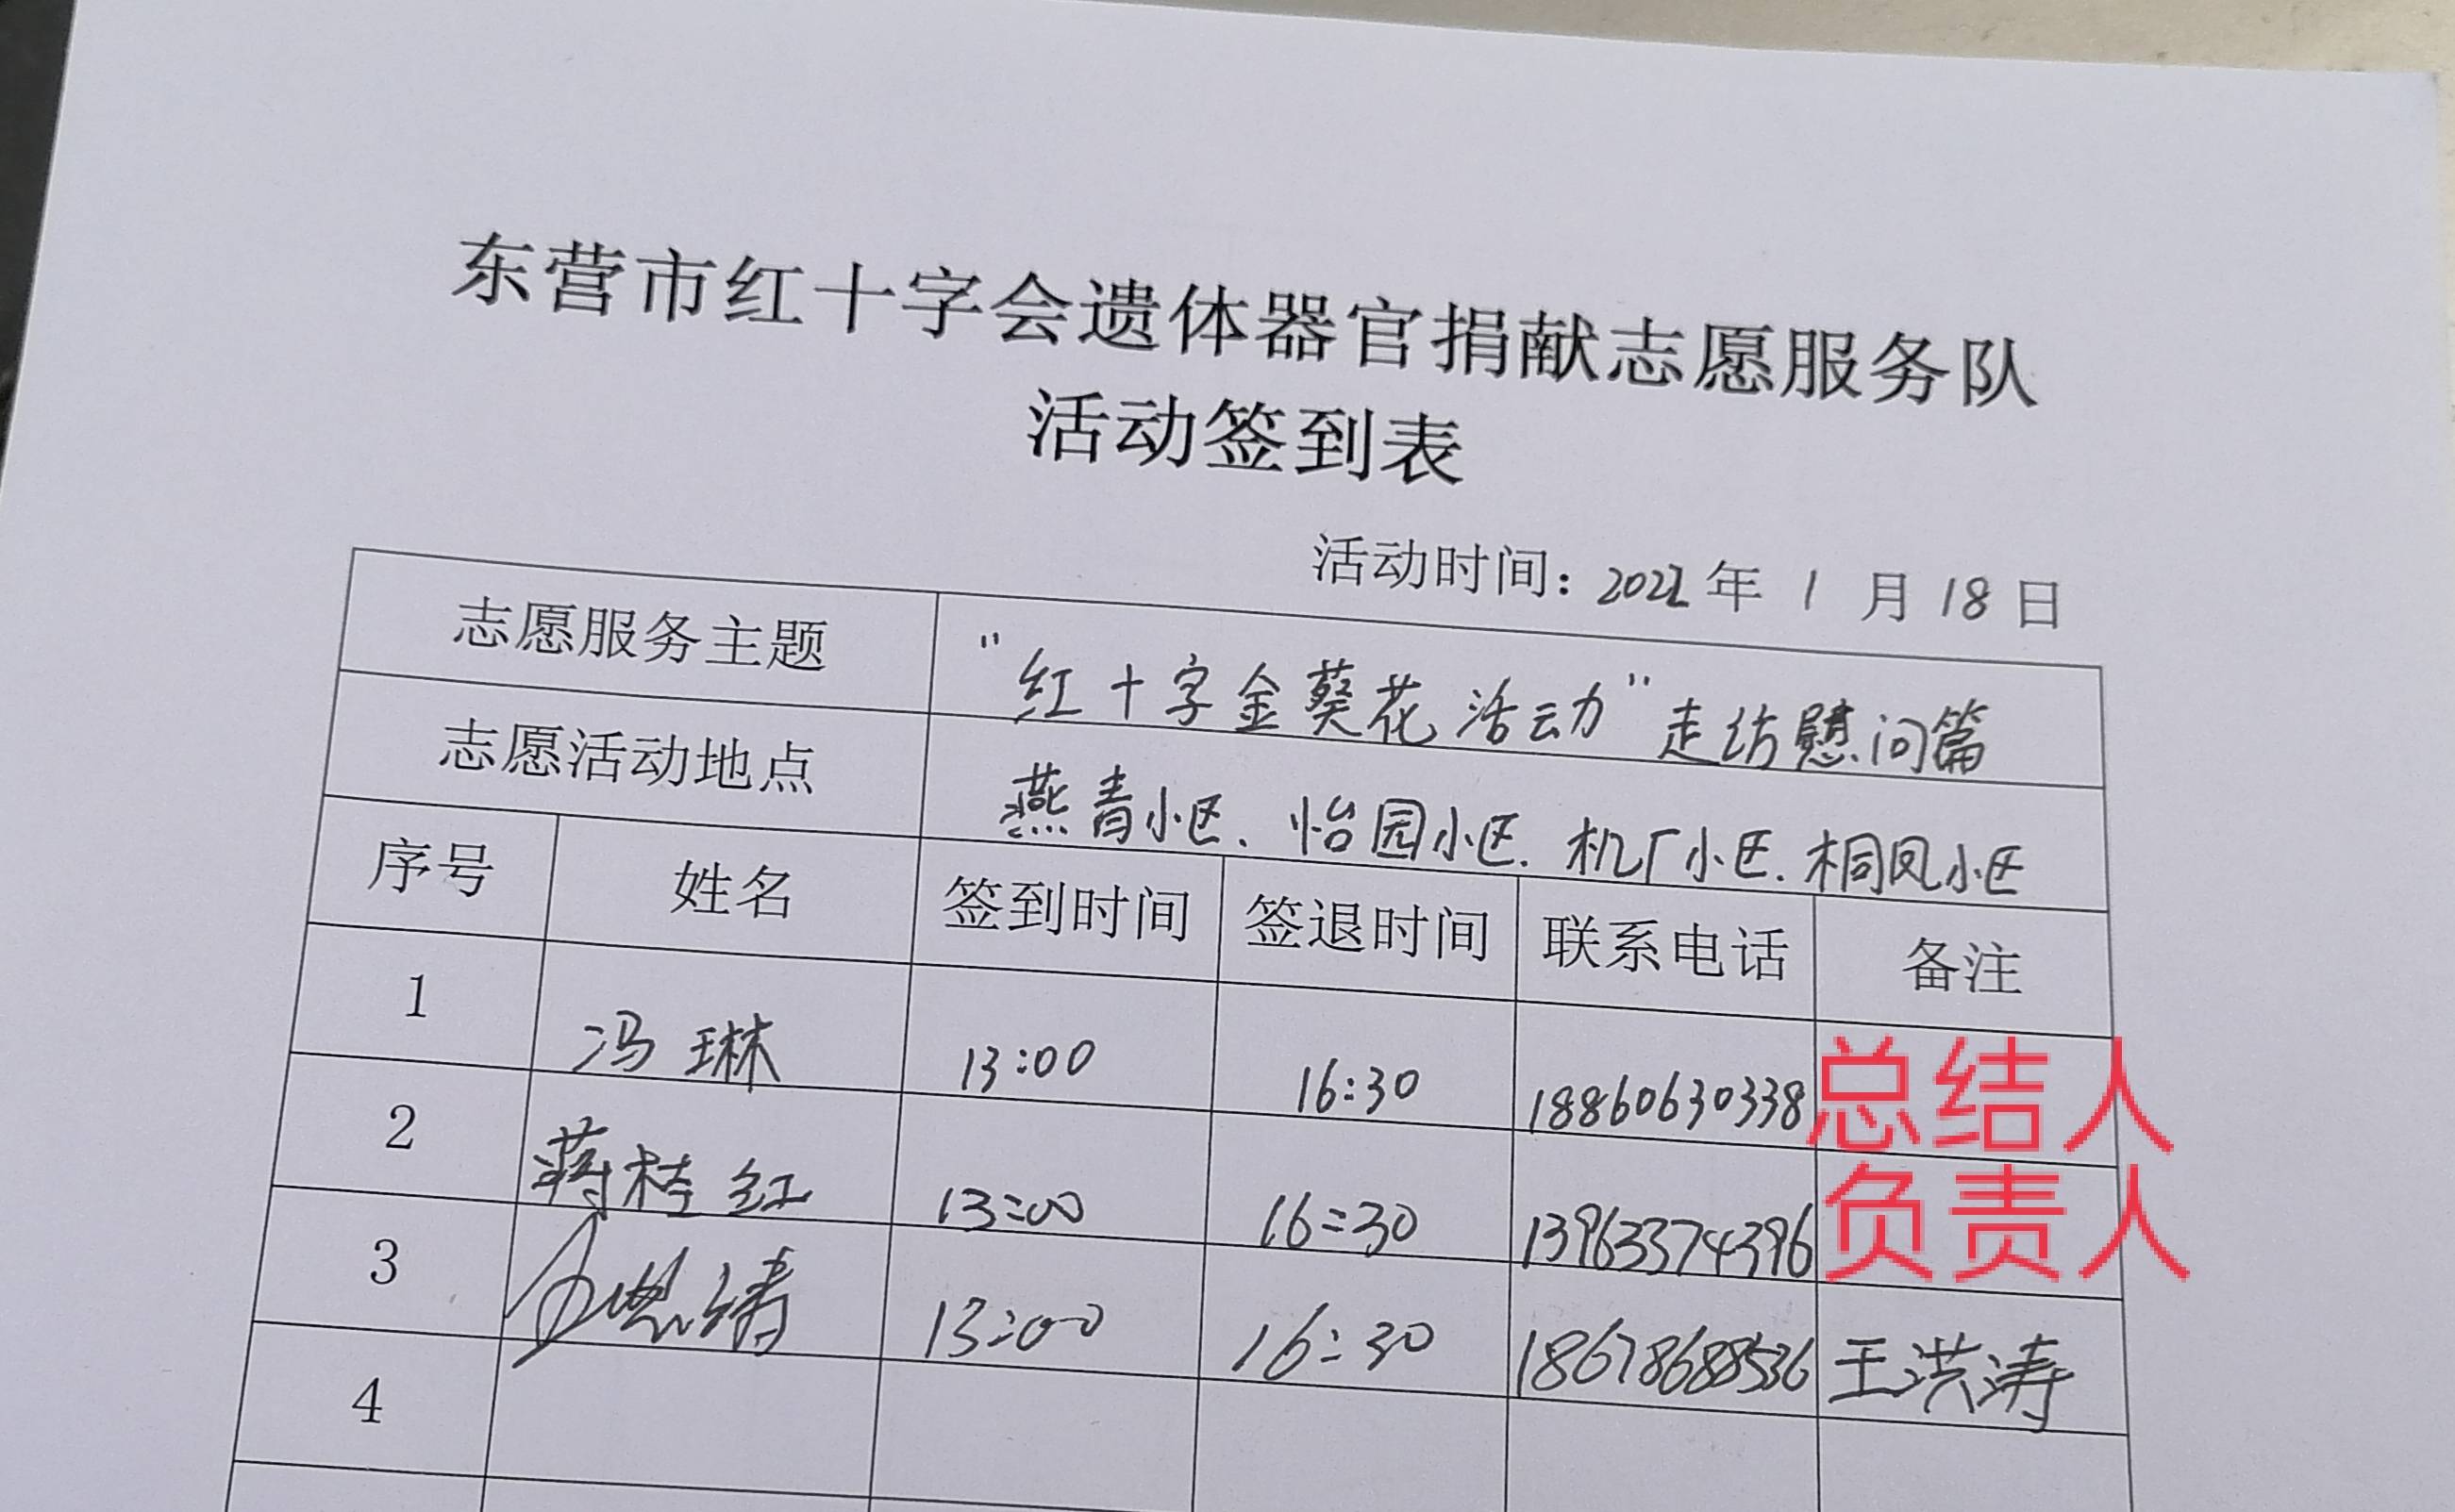 东营市红十字会遗体器官捐献志愿服务队
活动签到表
活动时间：2022年 1 月 18 日
志愿服务主题 "红十字金葵花活动"走访慰问篇
志愿活动地点 燕青小区、怡园小区、机厂小区、桐凤小区
序号 姓名 签到时间 签退时间 联系电话 备注
1 冯琳 13:00 16:30 18860630338 总结人
2 蒋桂红 13:00 16:30 13963374396 负责人
3 13:00 16:30 18678688536 王洪涛
4